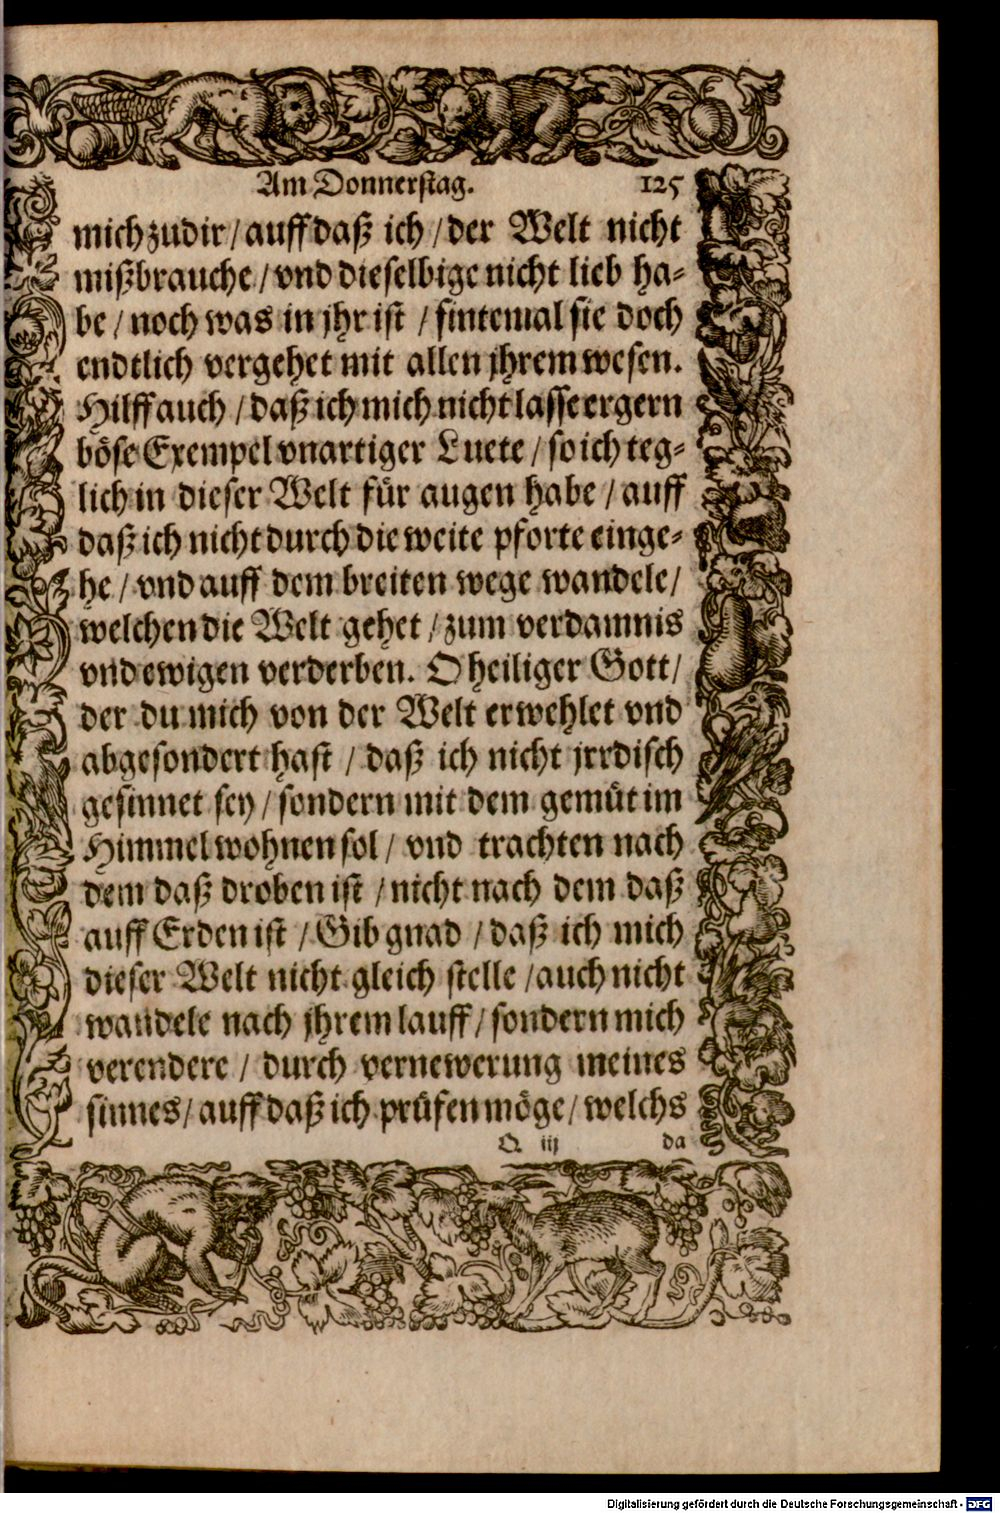 Am Donnerstag. 125
mich zu dir / auff daß ich / der Welt nicht
mißbrauche / vnd dieselbige nicht lieb ha⸗
be / noch was in jhr ist / sintemal sie doch
endtlich vergehet mit allen jhrem wesen.
Hilff auch / daß ich mich nicht lasse ergern
böse Exempel vnartiger Luete / so ich teg⸗
lich in dieser Welt für augen habe / auff
daß ich nicht durch die weite pforte einge⸗
he / vnd auff dem breiten wege wandele /
welchen die Welt gehet / zum verdamnis
vnd ewigen verderben. O heiliger Gott /
der du mich von der Welt erwehlet vnd
abgesondert hast / daß ich nicht jrrdisch
gesinnet sey / sondern mit dem gemüt im
Himmel wohnen sol / vnd trachten nach
dem daß droben ist / nicht nach dem daß
auff Erden ist / Gib gnad / daß ich mich
dieser Welt nicht gleich stelle / auch nicht
wandele nach jhrem lauff / sondern mich
verendere / durch vernewerung meines
sinnes / auff daß ich prüfen möge / welchs
Q iij da
Digitalisierung gefördert durch die Deutsche Forschungsgemeinschaft - DFG